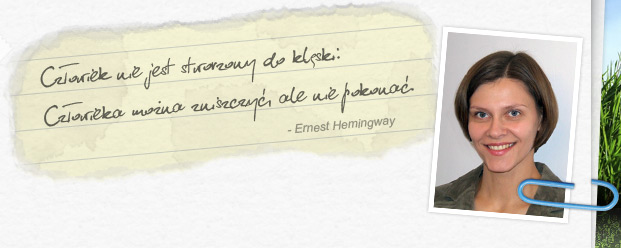 Człowiek nie jest stworzony do klęski:
Człowieka można zniszczyć, ale nie pokonać.
- Ernest Hemingway